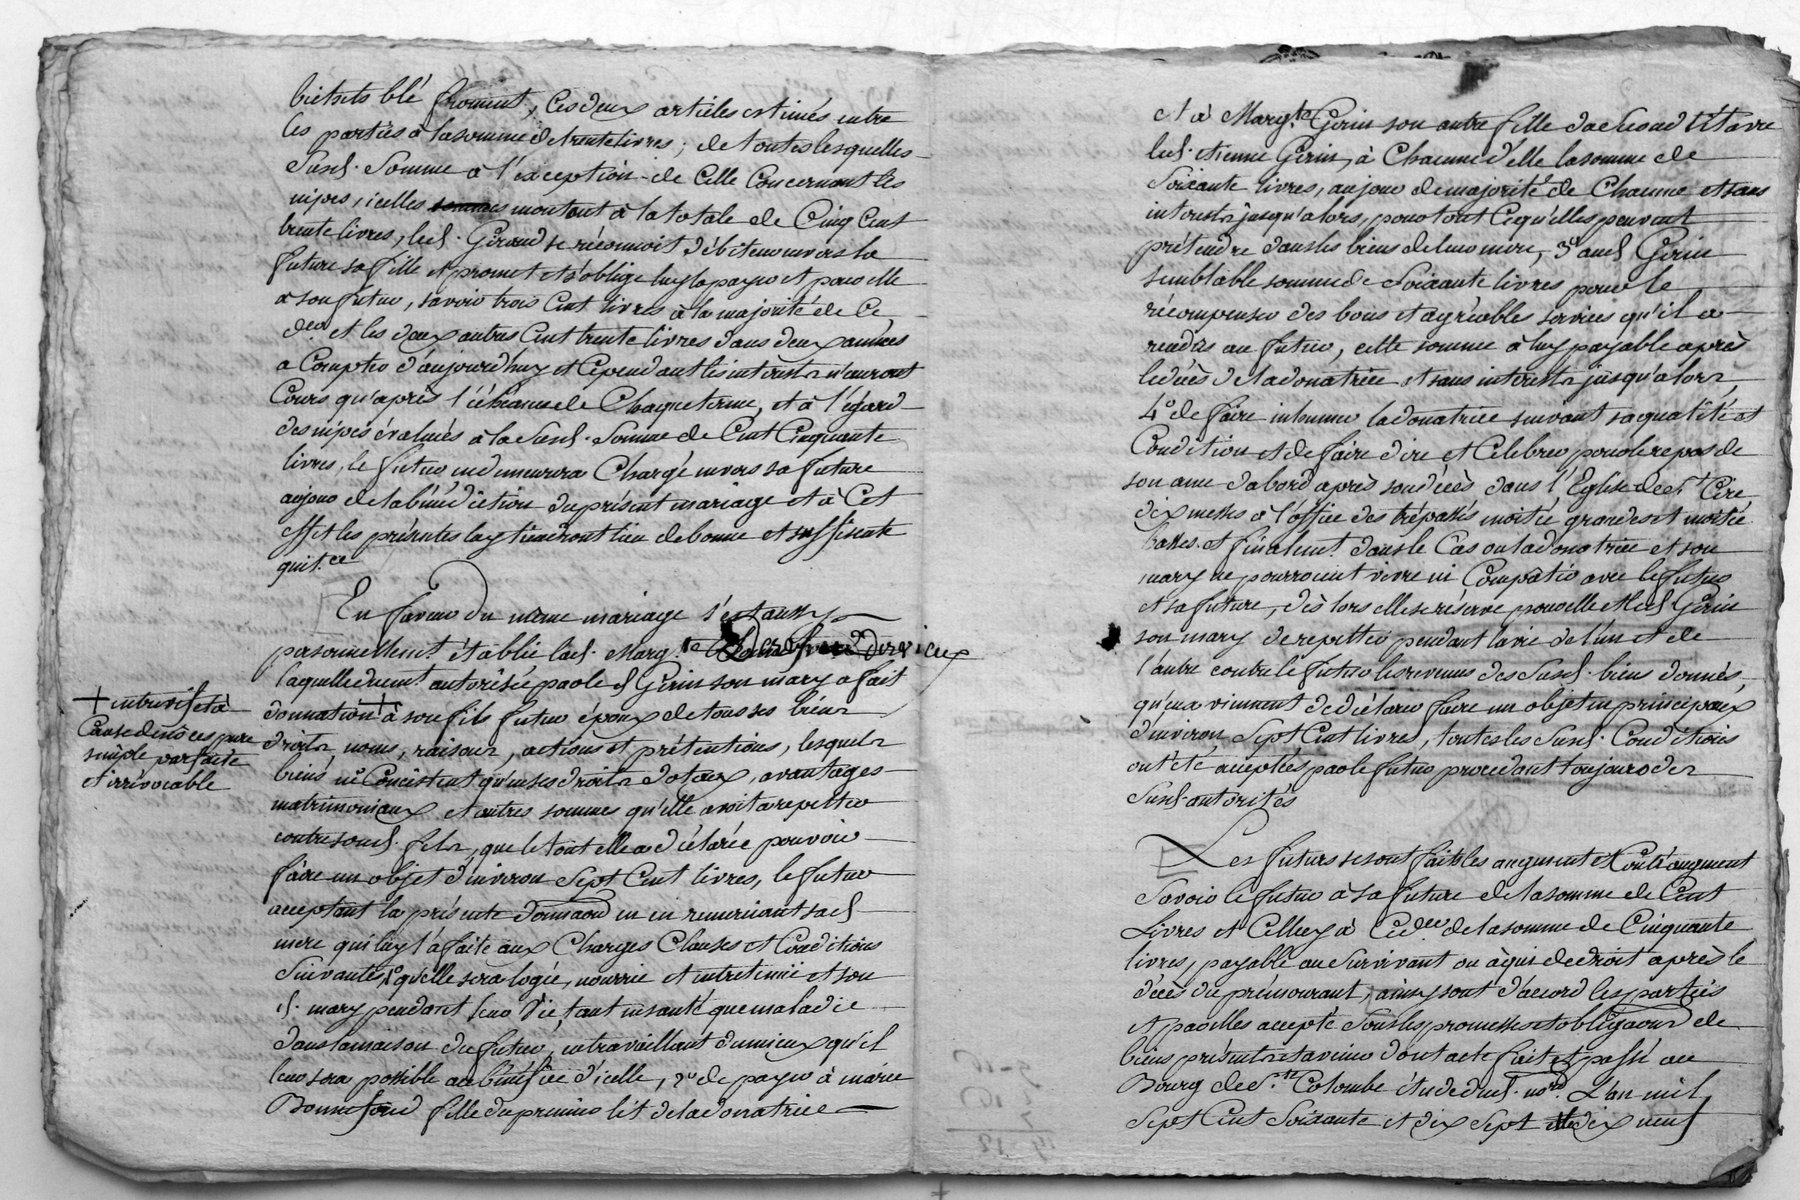 bichets blé froment, ces deux articles estimés entre
les parties à la somme de trente livres; de toutes lesquelles
susd. somme à l'exception de celle concernant les
nipes, icelles montent à la totale de cinq cent
trente livres, led. Giraud se réconnoit débiteur envers sa
future sa fille et promet et s'oblige luy la payer et pour elle
a son futur, savoir trois cent livres à la majorité de ce
der. et les deux autres cent trente livres dans deux années
a compter d'aujourd'huy et cependant les interests n'auront
cours qu'après l'échéance de chaque terme, et à l'égard
des nipes évaluées à la susd. somme de cent cinquante
livres, le futur en demeurera chargé envers sa future
au jour de la bénédiction du présent mariage et à cet
effet les présentes luy tiendront lieu de bonne et suffisente
quit.ce
En faveur du même mariage s'est aussy
personnellement établie lad. Marg.te
laquelle duemt. autorisée par led. Gerin son mary a fait
donnation + à son fils futur époux de tous ses biens
+ entre vifs et à
cause de nôces pure
simple parfaite
et irrévocable
droits, noms, raisons, actions et prétentions, lesquels
biens ne consistent qu'en ses droits dotaux, avantages
matrimoniaux et autres sommes qu'elle avoit a repetter
contre sond. fils, que le tout elle a déclarée pouvoir
faire un objet d'environ sept cent livres, le futur
acceptant la présente donnaon en en remerciant sad.
mere qui luy l'a faite aux charges clauses et conditions
suivantes, 1º qu'elle sera logée, nourrie et entretenüe et son
d. mary pendant leur vie, tant en santé que maladie
dans la maison du futur, en travaillant du mieux qu'il
leur sera possible au bénéfice d'icelle, 2º de payer à marie
Bonnefond fille du premier lit de la donatrice
et à Marg.te Gerin son autre fille
led. etienne Gerin, à chacune d'elle la somme de
soixante livres, au jour de majorité de chacune et sans
interests jusqu'alors, pour tout ce qu'elles peuvent
prétendre dans les biens de leur mere, 3º aud. Gerin
semblable somme de soixante livres pour le
récompenser des bons et agréables services qu'il a
rendus au futur, cette somme à luy payable après
le décès de la donatrice et sans interests jusqu'alors
4º de faire inhumer la donatrice suivant sa qualité et
condition et de faire dire et célébrer pour le repos de
son ame d'abord après son décès dans l'Eglise de St Cire
dix messes à l'office des trépassés moitié grandes et moitié
basses. et finalemt. dans le cas ou la donatrice et son
mary ne pourroient vivre ni compatir avec le futur
et sa future, dès lors elle se réserve pour elle et led. Gerin
son mary de repetter pendant la vie de l'un et de
l'autre contre le futur les revenus des susd. biens donnés,
qu'eux viennent de déclarer faire un objet en principaux
d'environ sept cent livres, toutes les susd. conditions
ont été acceptées par le futur procedant toujours des
susd. autorités
Les futurs se sont faits les augment et contr'augment
savoir le futur à sa future de la somme de cent
livres et celle cy à ce der de la somme de cinquante
livres, payable au survivant ou à qui de droit après le
décès du prémourant, ainsy sont d'accord les parties
et par elles accepté sous les promesses et obligaons de
biens présents et avenir dont acte fait et passé au
Bourg de Ste. Colombe étude dud. nore. L'an mil
sept cent soixante et dix sept et le dix neuf